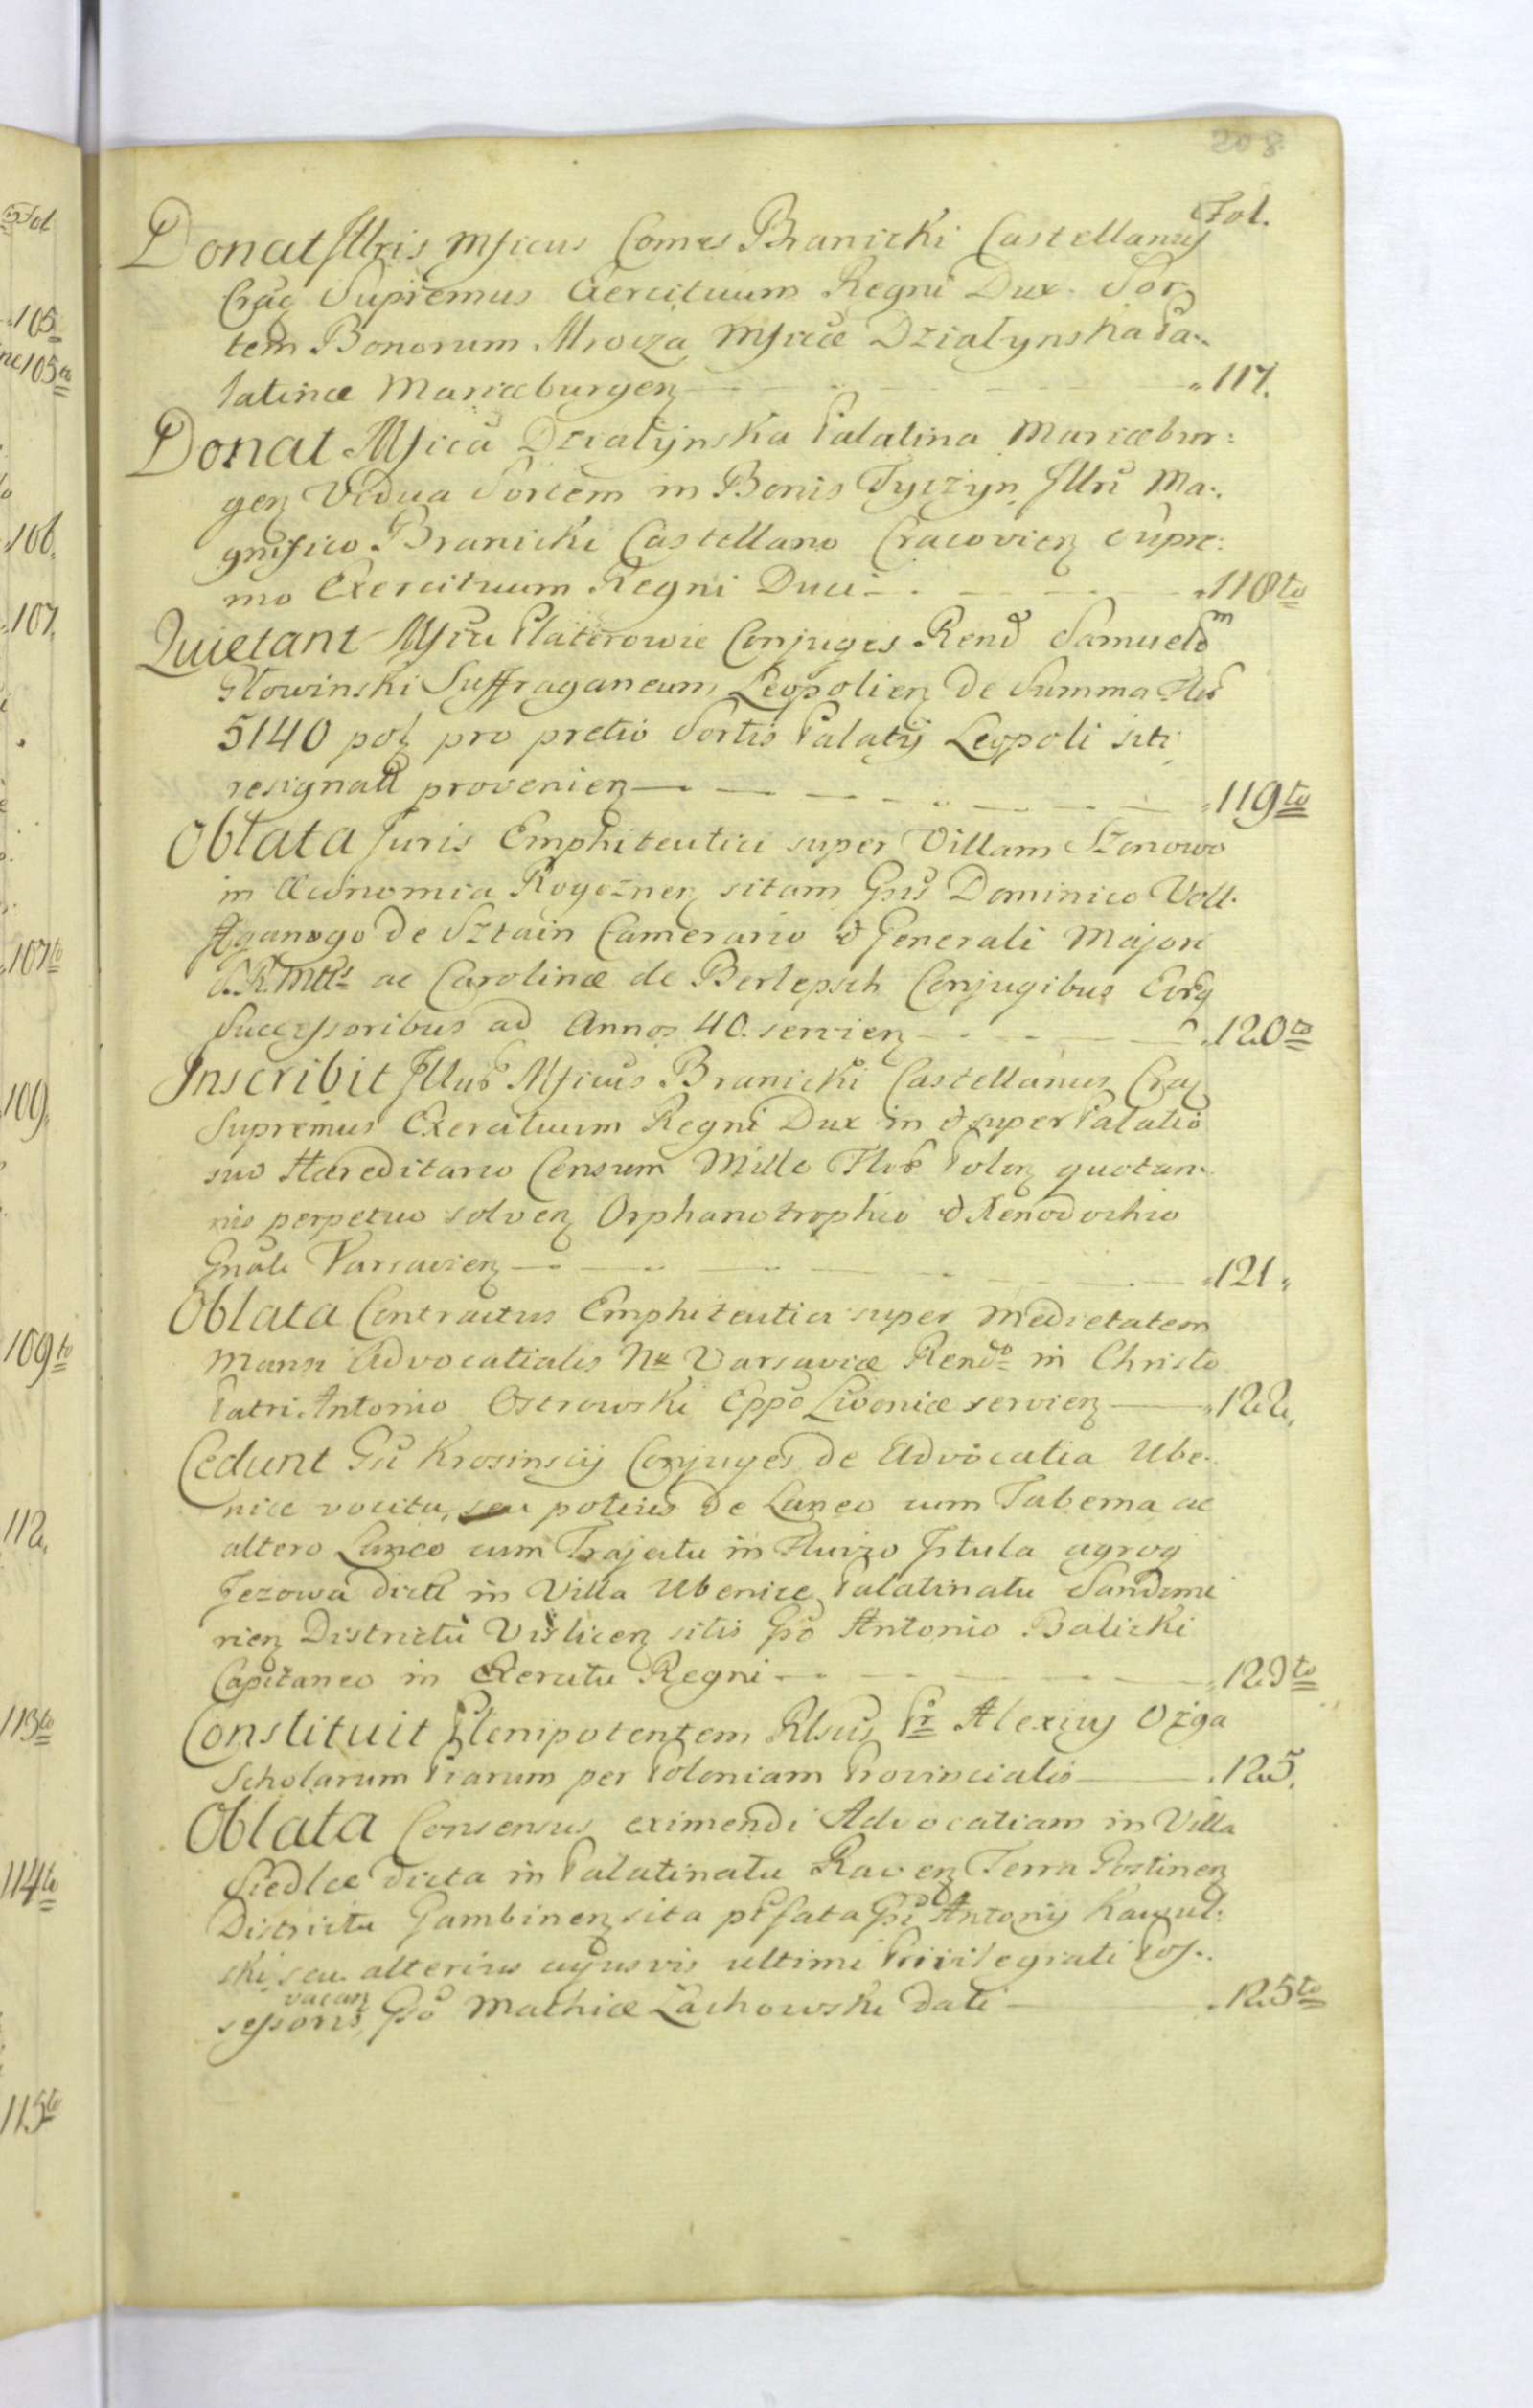 208
Fol.
Donat Illris Mficus Comes Branicki Castellanus
Crac Supremus Exercituum Regni Dux Sor-
tem Bonorum Mrocza Mficæ Dzialynska Pa-
latinæ Mariæburgen 117.
Donat Mfica Dzialynska Palatina Mariæbur:
gen Vidua Sortem in Bonis Tyczyn Illri Ma-
gnifico Branicki Castellano Cracovien Supre:
mo Exercituum Regni Duci 118to
Quietant Mfici Platerowie Conjuges Rend Samuelem
Głowinski Suffraganeum Leopolien de Summa Flor
5140 pol pro pretio Sortis Palatij Leopoli siti
resignati provenien 119to
Oblata Juris Emphiteutici super Villam
in Œconomia Rogoznen sitam Gso Dominico
de Sztain Camerario & Generali Majori
S.R.Mttis ac Carolinæ de Berlepsch Conjugibus Eorq
Successoribus ad Annos 40. servien 120to
Inscribit Illus Mficus Branicki Castellanus Crac
Supremus Exercituum Regni Dux in & super Palatio
suo Hæreditario Censum Mille Flor Polon quotan-
nis perpetuo solven Orphanotrophio & Xenodochio
Gnali Varsavien 121.
Oblata Contractus Emphiteutici super Medietatem
Mansi Advocatialis Næ Varsaviæ Rendo in Christo
Patri Antonio Ostrowski Eppo Livoniæ servien 122.
Cedunt Gsi Krosinscij Conjuges de Advocatia Ube-
nice vocita, seu potius de Laneo cum Taberna ac
altero Laneo cum Trajectu in Fluvio Istula agroq
Jezowa dicti in Villa Ubenice Palatinatu Sandomi
rien Districtu Vislicen sitis Gso Antonio Balicki
Capitaneo in Exercitu Regni 123to
Constituit Plenipotentem Rlsus Pr Alexius Ożga
Scholarum Piarum per Poloniam Provincialis 125.
Oblata Consensus eximendi Advocatiam in Villa
Siedlce dicta in Palatinatu Raven Terra Gostinen
Districtu Gambinen sita præfata Gsi Antonij
ski seu alterius cujusvis ultimi Privilegiati Pos-
sessoris vacan Gso Mathiæ Lachowski dati 125to
Fol
105
105to
106.
107.
107to
109.
109to
112.
113to
114to
115to